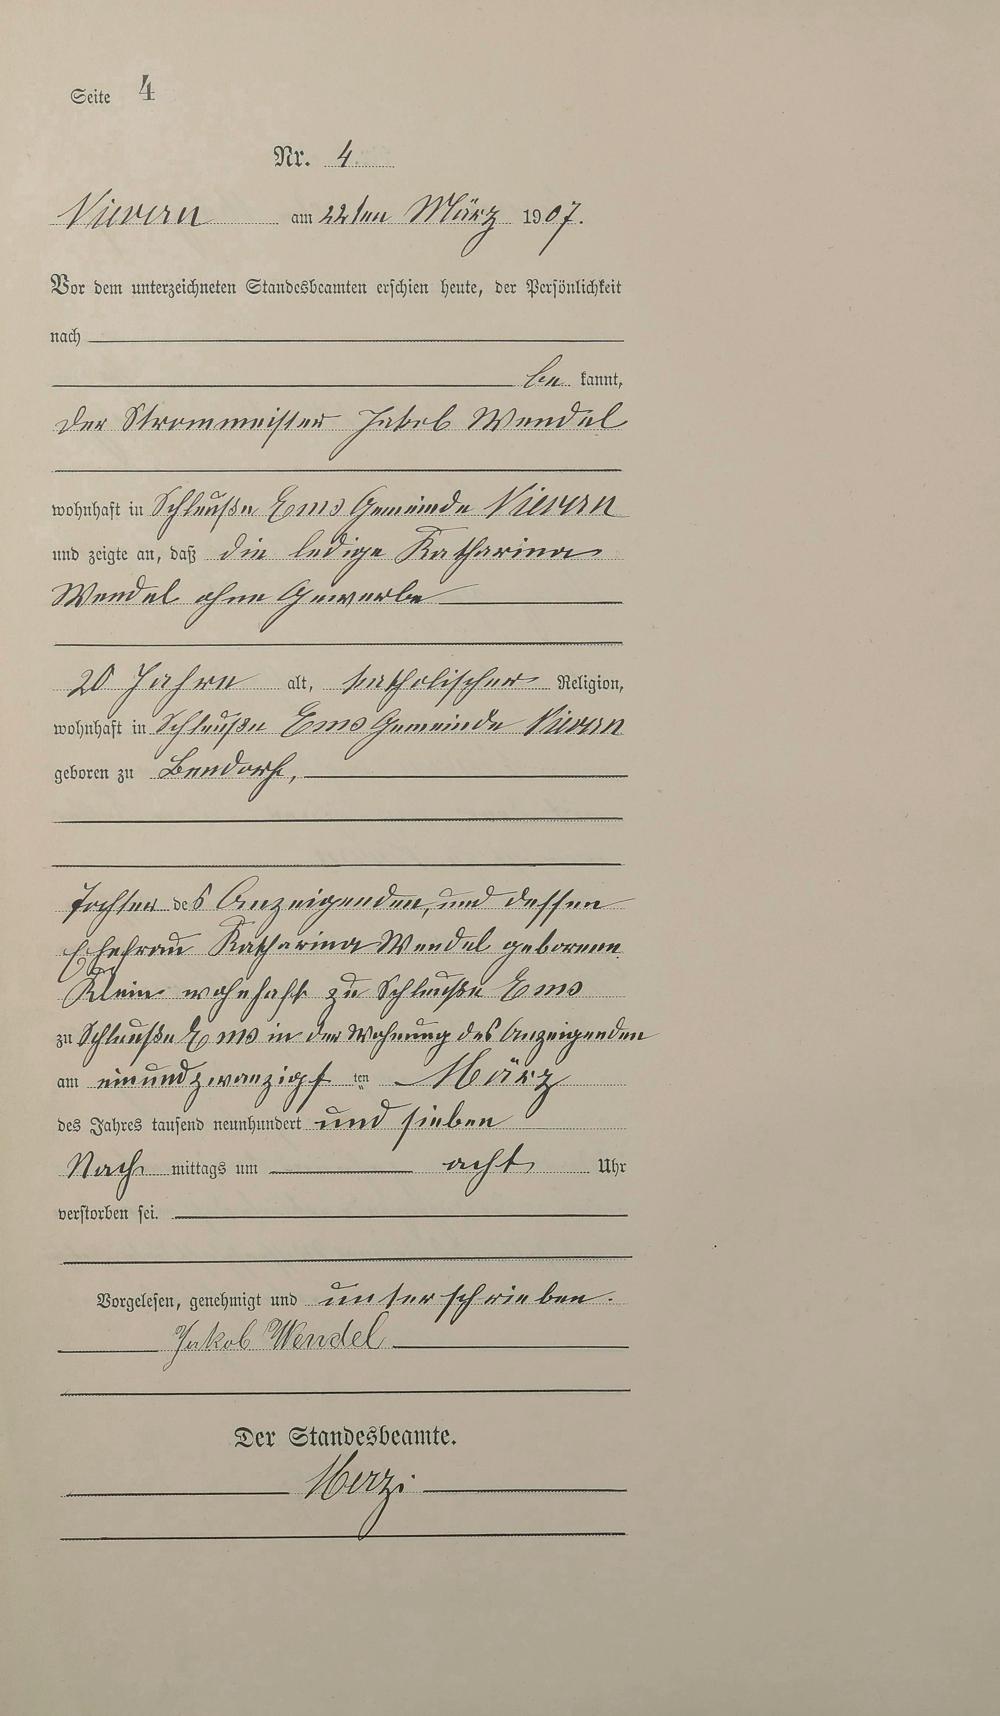 Seite 4
Nr. 4.
Nievern am 22ten März 1907.
Vor dem unterzeichneten Standesbeamten erschien heute, der Persönlichkeit
nach
be kannt,
der Strommeister Jakob Wendel
wohnhaft in Schleuße Ems Gemeinde Nievern
und zeigte an, daß die ledige Katharina
Wendel ohne Gewerbe
20 Jahre alt, katholischer Religion,
wohnhaft in Schleuße Ems Gemeinde Nievern
geboren zu Bendorf,
Tochter des Anzeigenden, und dessen
Ehefrau Katharina Wendel geborene
Klein wohnhaft zu Schleuße Ems
zu Schleuße Ems in der Wohnung des Anzeigenden
am einundzwanzigst ten März
des Jahres tausend neunhundert und sieben
Nach mittags um acht Uhr
verstorben sei.
Vorgelesen, genehmigt und unterschrieben.
Jakob Wendel
Der Standesbeamte.